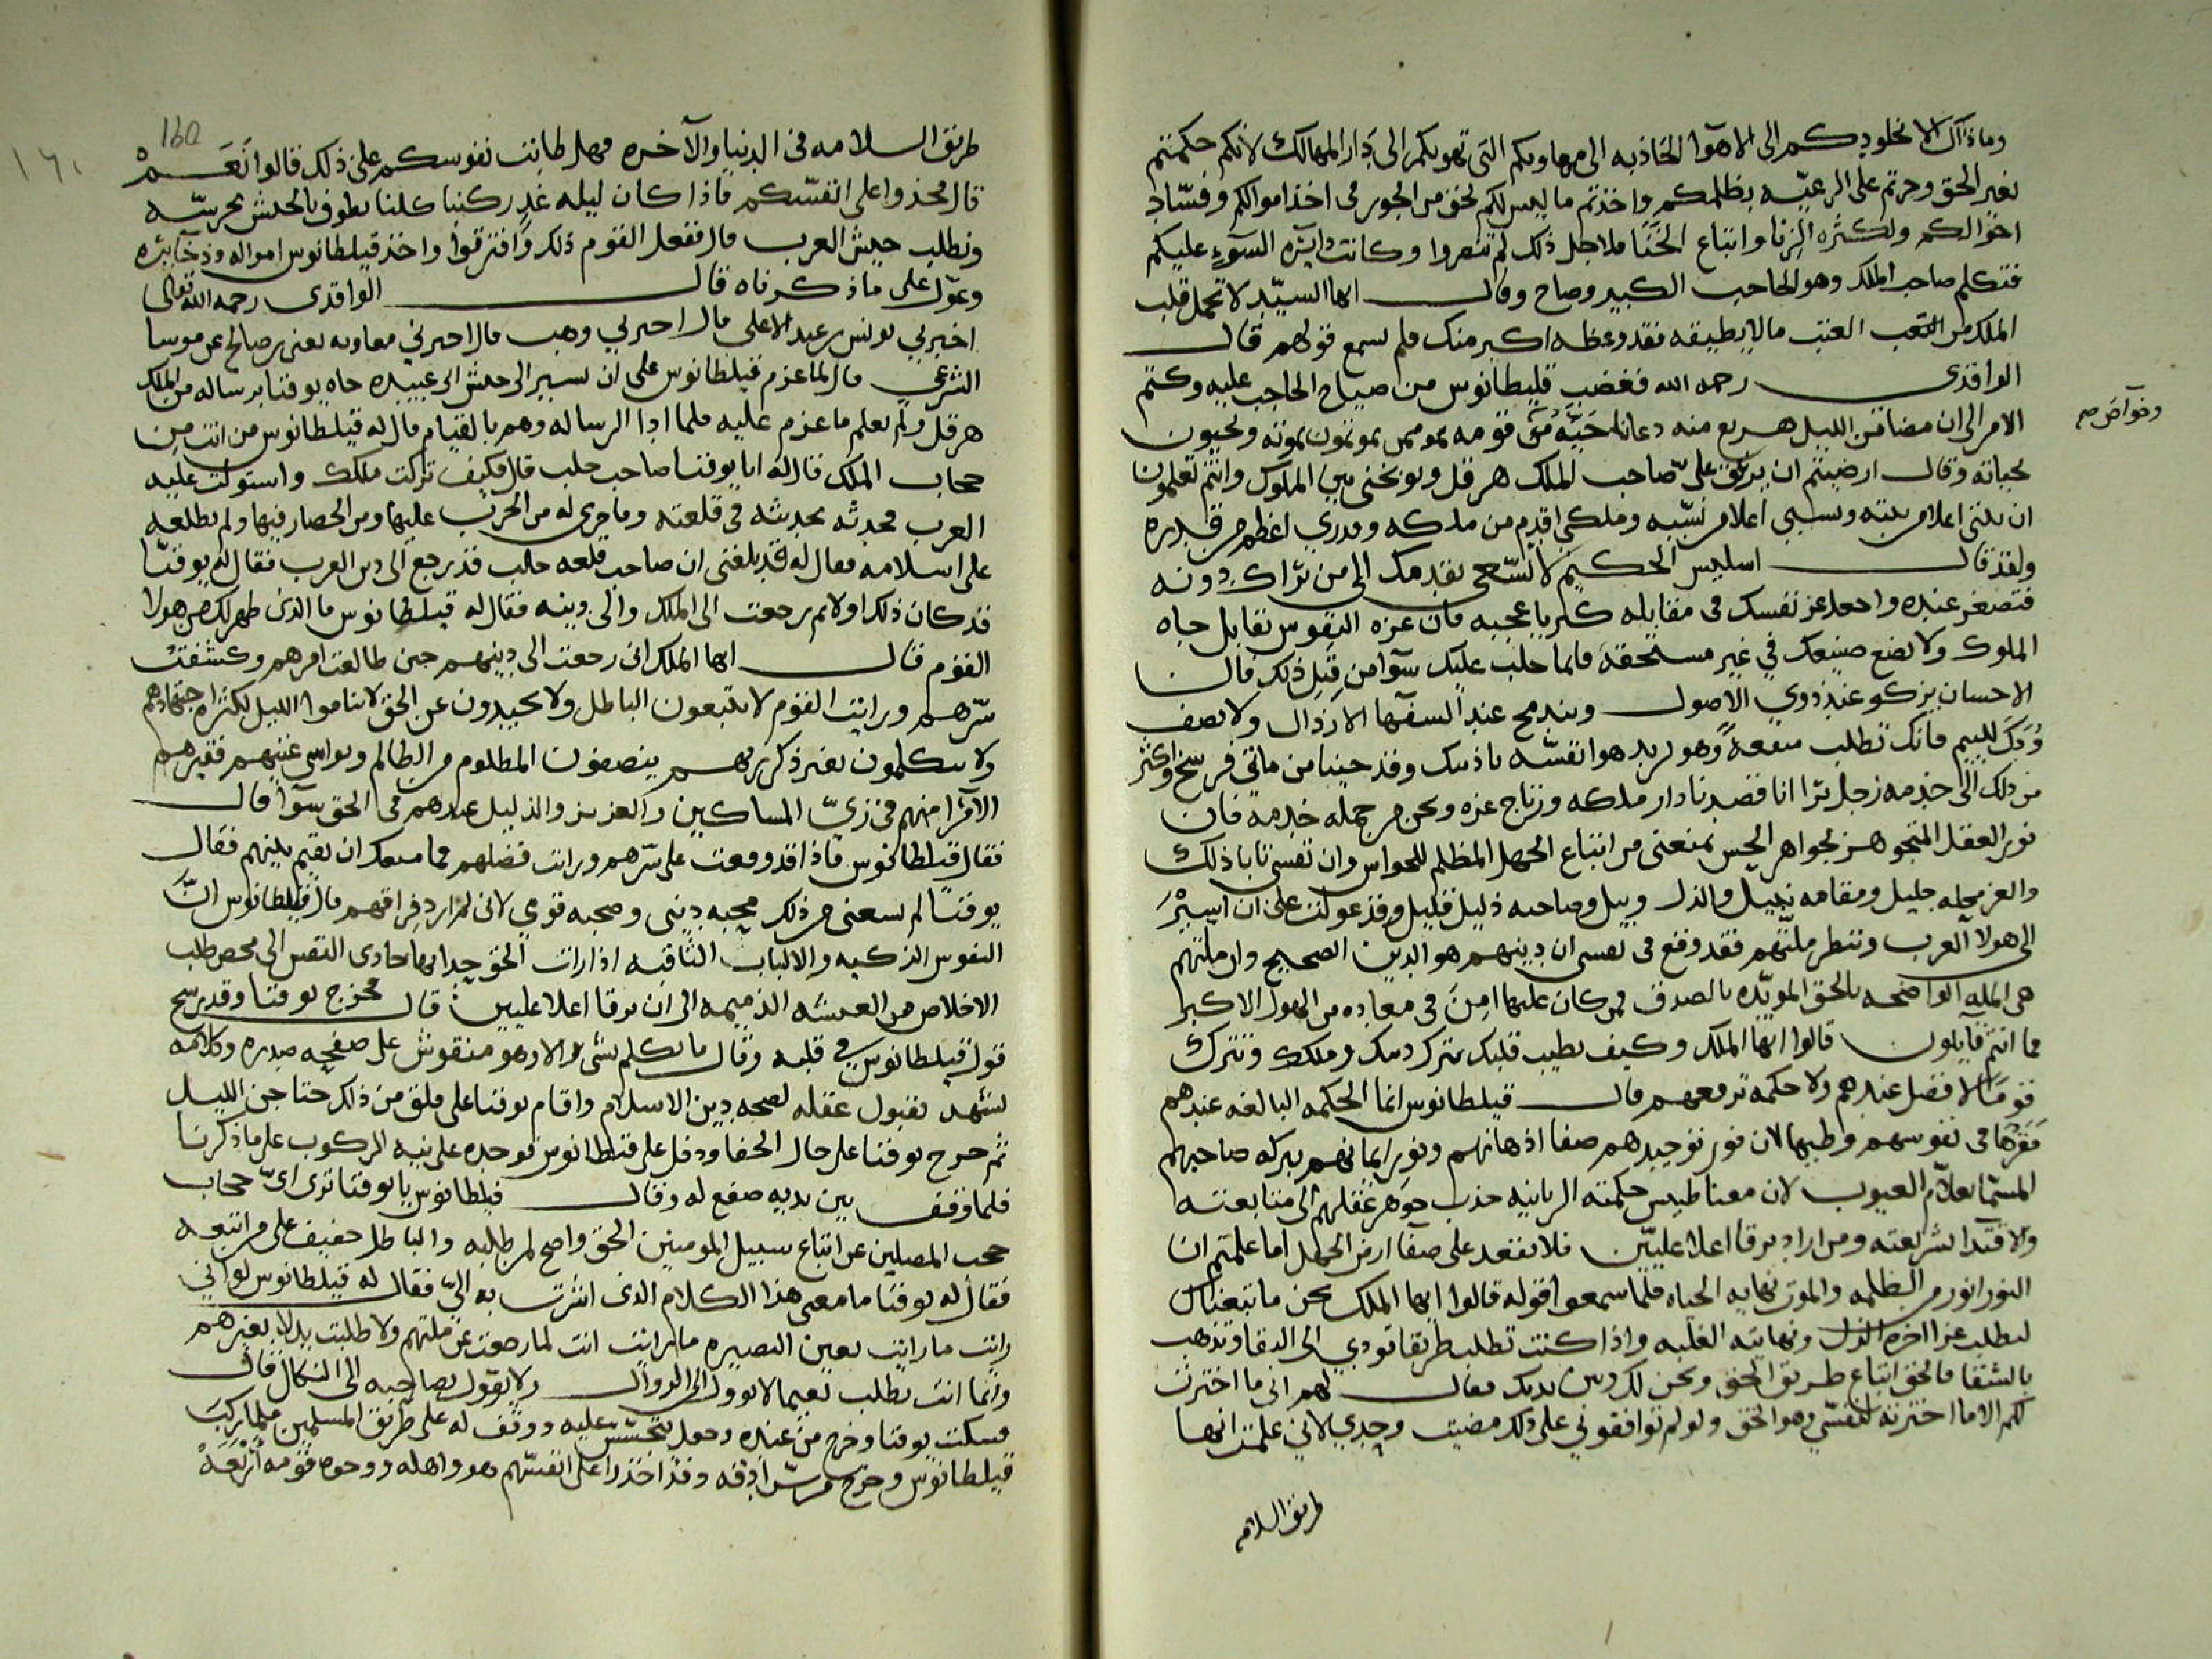 وماذاك الا نخلودكم الى الاهوا الحاذبه الى مهاويكم التى تهويكم الى دار المهالك لانكم حكمتم
بغير الحق وجرتم على الرعيّه بظلمكم واخذتم ما ليس لكم بحق من الجور فى اخذ اموالكم وفسّاد
احوالكم ولكثره الزنا واتباع الخنا فلاجل ذلك لم تنصروا وكانت دايره السوء عليكم
فتكلم صاحب الملك وهو الحاجب الكبير وصاح وقال ايها السيّد لا تحمل قلب
الملك من التعب العتب مالا يطيقه فقد وعظه اكبر منك فلم يسمع قولهم قال
الواقدى رحمه الله فغضب قليطانوس من صياح الحاجب عليه وكتم
الامر الى ان مضا من الليل هزيع منه دعا باحبّه من قومه ممن يموتون بموته ويحيون
وخواصهم
بحياته وقال ارضيتم ان يزعق علىّ صاحب الملك هرقل ويوبخنى بين الملوك وانتم تعلمون
ان بيتى اعلا من بيته ونسبى اعلا من نسبه وملكى اقدم من ملكه وقدرى اعظم من قدره
ولقد قال اسليس الحكيم لا تسّعى بقدمك الى من يراك دونه
فتصغر عنده واجعل عز نفسك فى مقابله كبر يا عجبه فان عزه النفوس تقابل جاه
الملوك ولا تضع صنيعك في غير مستحقه فانما جلب عليك سوآ من قبل ذلك فان
الاحسان يزكو عند ذوي الاصول ويندمج عند السفها الارذال ولا تصف
ودك لليم فانك تطلب منفعة وهو يريد هوا نفسّه باذيتك وقد جينا من ماتى فرسخ واكثر
من ذلك الى خدمه رجل يرا انا قصدنا دار ملكه وزتاج عزه ونحن من جمله خدمه فان
نور العقل المتجوهر بجواهر الحس يمنعنى من اتباع الجهل المظلم للحواس وان نفسى تابا ذلك
والعز محله جليل ومقامه نبيل والذل وبيل وصاحبه ذليل قليل وقد عولت على ان اسير
الى هولا العرب وننظر ملتهم فقد وقع فى نفسى ان دينهم هو الدين الصحيح وان ملتهم
هى المله الواضحه بالحق المويّده بالصدق فمن كان عليها امن فى معاده من الهول الاكبر
فما انتم قايلون قالوا ايها الملك وكيف يطيب قلبك بترك دينك وملكك وتترك
قومنا لا فضل عندهم ولا حكمه ترفعهم قال قيلطانوس انما الحكمه البالغه عندهم
مقرها فى نفوسهم وطيبها لان نور توحيدهم صفا اذهانهم ونور ايمانهم ببركه صاحبهم
المسّما بعلّام الغيوب لان مغناطيس حكمته الربانيه جذب جوهر عقلهم الى متابعته
والاقتدا بشريعته ومن اراد يرقا اعلا عليين فلا يقعد على صفا ارض الجهل اما علمتم ان
النور انور من الظلمه والموت نهايه الحياه فلما سمعوا قوله قالوا ايها الملك نحن ما تبعناك
لنطلب عزا اخره الذل ونهايته الغلبه واذا كنت تطلب طريقا تودي الى البقا وتذهب
بالشقا فالحق اتباع طريق الحق ونحن لك وبين يديك فقال لهم انى ما اخترت
لكم الا ما اخترته لنفسّي وهو الحق ولو لم توافقونى على ذلك مضيت وحدي لاني علمت انها
طريق السلامه
160
١٦٠
طريق السلامه فى الدنيا والآخره فهل طابت نفوسكم على ذلك قالوا نعم
قال فخذوا على انفسّكم فاذا كان ليله غد ركبنا كلنا نطوف بالجيش نحرسّه
ونطلب جيش العرب قال ففعل القوم ذلك وافترقوا واخذ قيلطانوس امواله وذخايره
وعوّل على ماذكرناه قال الواقدى رحمه الله تعالى
اخبرني يونس بن عبد الاعلى قال اخبرني وهب قال اخبرني معاويه يعنى بن صالح عن موسا
الشرعي قال لما عزم قيلطانوس على ان يسير الى جيش ابى عبيده جاه يوقنا برساله من الملك
هرقل ولم يعلم ما عزم عليه فلما ادا الرساله وهم بالقيام قال له قيلطانوس من انت من
حجاب الملك قال له انا يوقنا صاحب حلب قال فكيف تركت ملكك واستولت عليه
العرب فحدثه بحديثه فى قلعته وما جرى له من الحرب عليها ومن الحصار فيها ولم يطلعه
على اسلامه فقال له قد بلغنى ان صاحب قلعه حلب قد رجع الى دين العرب فقال له يوقنّا
قد كان ذلك اولا ثم رجعت الى الملك والى دينه فقال له قيلطانوس ما الذى ظهر لك من هولا
القوم قال ايها الملك انى رجعت الى دينهم حين طالعت امرهم وكشفت
سّرهم ورايت القوم لا يتبعون الباطل ولا يحيدون عن الحق لا يناموا الليل لكثره اجتهادهم
ولا يتكلمون بغير ذكر ربهم ينصفون المطلوم من الظالم ويواسى غنيهم فقيرهم
الامرا منهم فى زىّ المساكين والعزيز والذليل عندهم فى الحق سوآ قال
فقال قيلطانوس فاذا قد وقعت على سّرهم ورايت فضلهم فما منعك ان تقيم بينهم فقال
يوقنّا لم يسعنى من ذلك محبه دينى وصحبه قومي لانى لم ارد فراقهم قال قيلطانوس انّ
النفوس الزكيه والالباب الثاقبه اذا رات الحق جدابها حادى النفس الى محض طلب
الاخلاص من العيشه الذميمه الى ان ترقا اعلا عليين قال فخرج يوقنا وقد رسخ
قول قيلطانوس في قلبه وقال ما تكلم بشىء الا وهو منقوش على صفحه صدره وكلامه
يشهد بقبول عقله لصحه دين الاسلام واقام يوقنا على قلق من ذلك حتا جن الليل
ثم خرج يوقنا على حال الخفا ودخل على قيلطانوس فوجده على نيه الركوب على ما ذكرنا
فلما وقف بين يديه صقع له وقال قيلطانوس يا يوقنا ترى اىّ حجاب
حجب المصلين عن اتباع سبيل المومنين الحق واضح لمن طلبه والباطل خفيف على من اتبعه
فقال له يوقنا ما معنى هذا الكلام الذى اشرت به الىّ فقال له قيلطانوس لو انى
رايت ما رايت بعين البصيره ما رايت انت لما رجعت عن ملتهم ولا طلبت بدلا بغيرهم
وانما انت تطلب نعيما لا يوول الى الزوال ولا يقول بصاحبه الى النكال قال
فسكت يوقنا وخرج من عنده وجعل يتجسّس عليه ووقف له على طريق المسلمين فلما ركب
قيلطانوس وخرج من سّرادقه وقد اخذوا على انفسّهم هو واهله ووجوه قومه اربعة